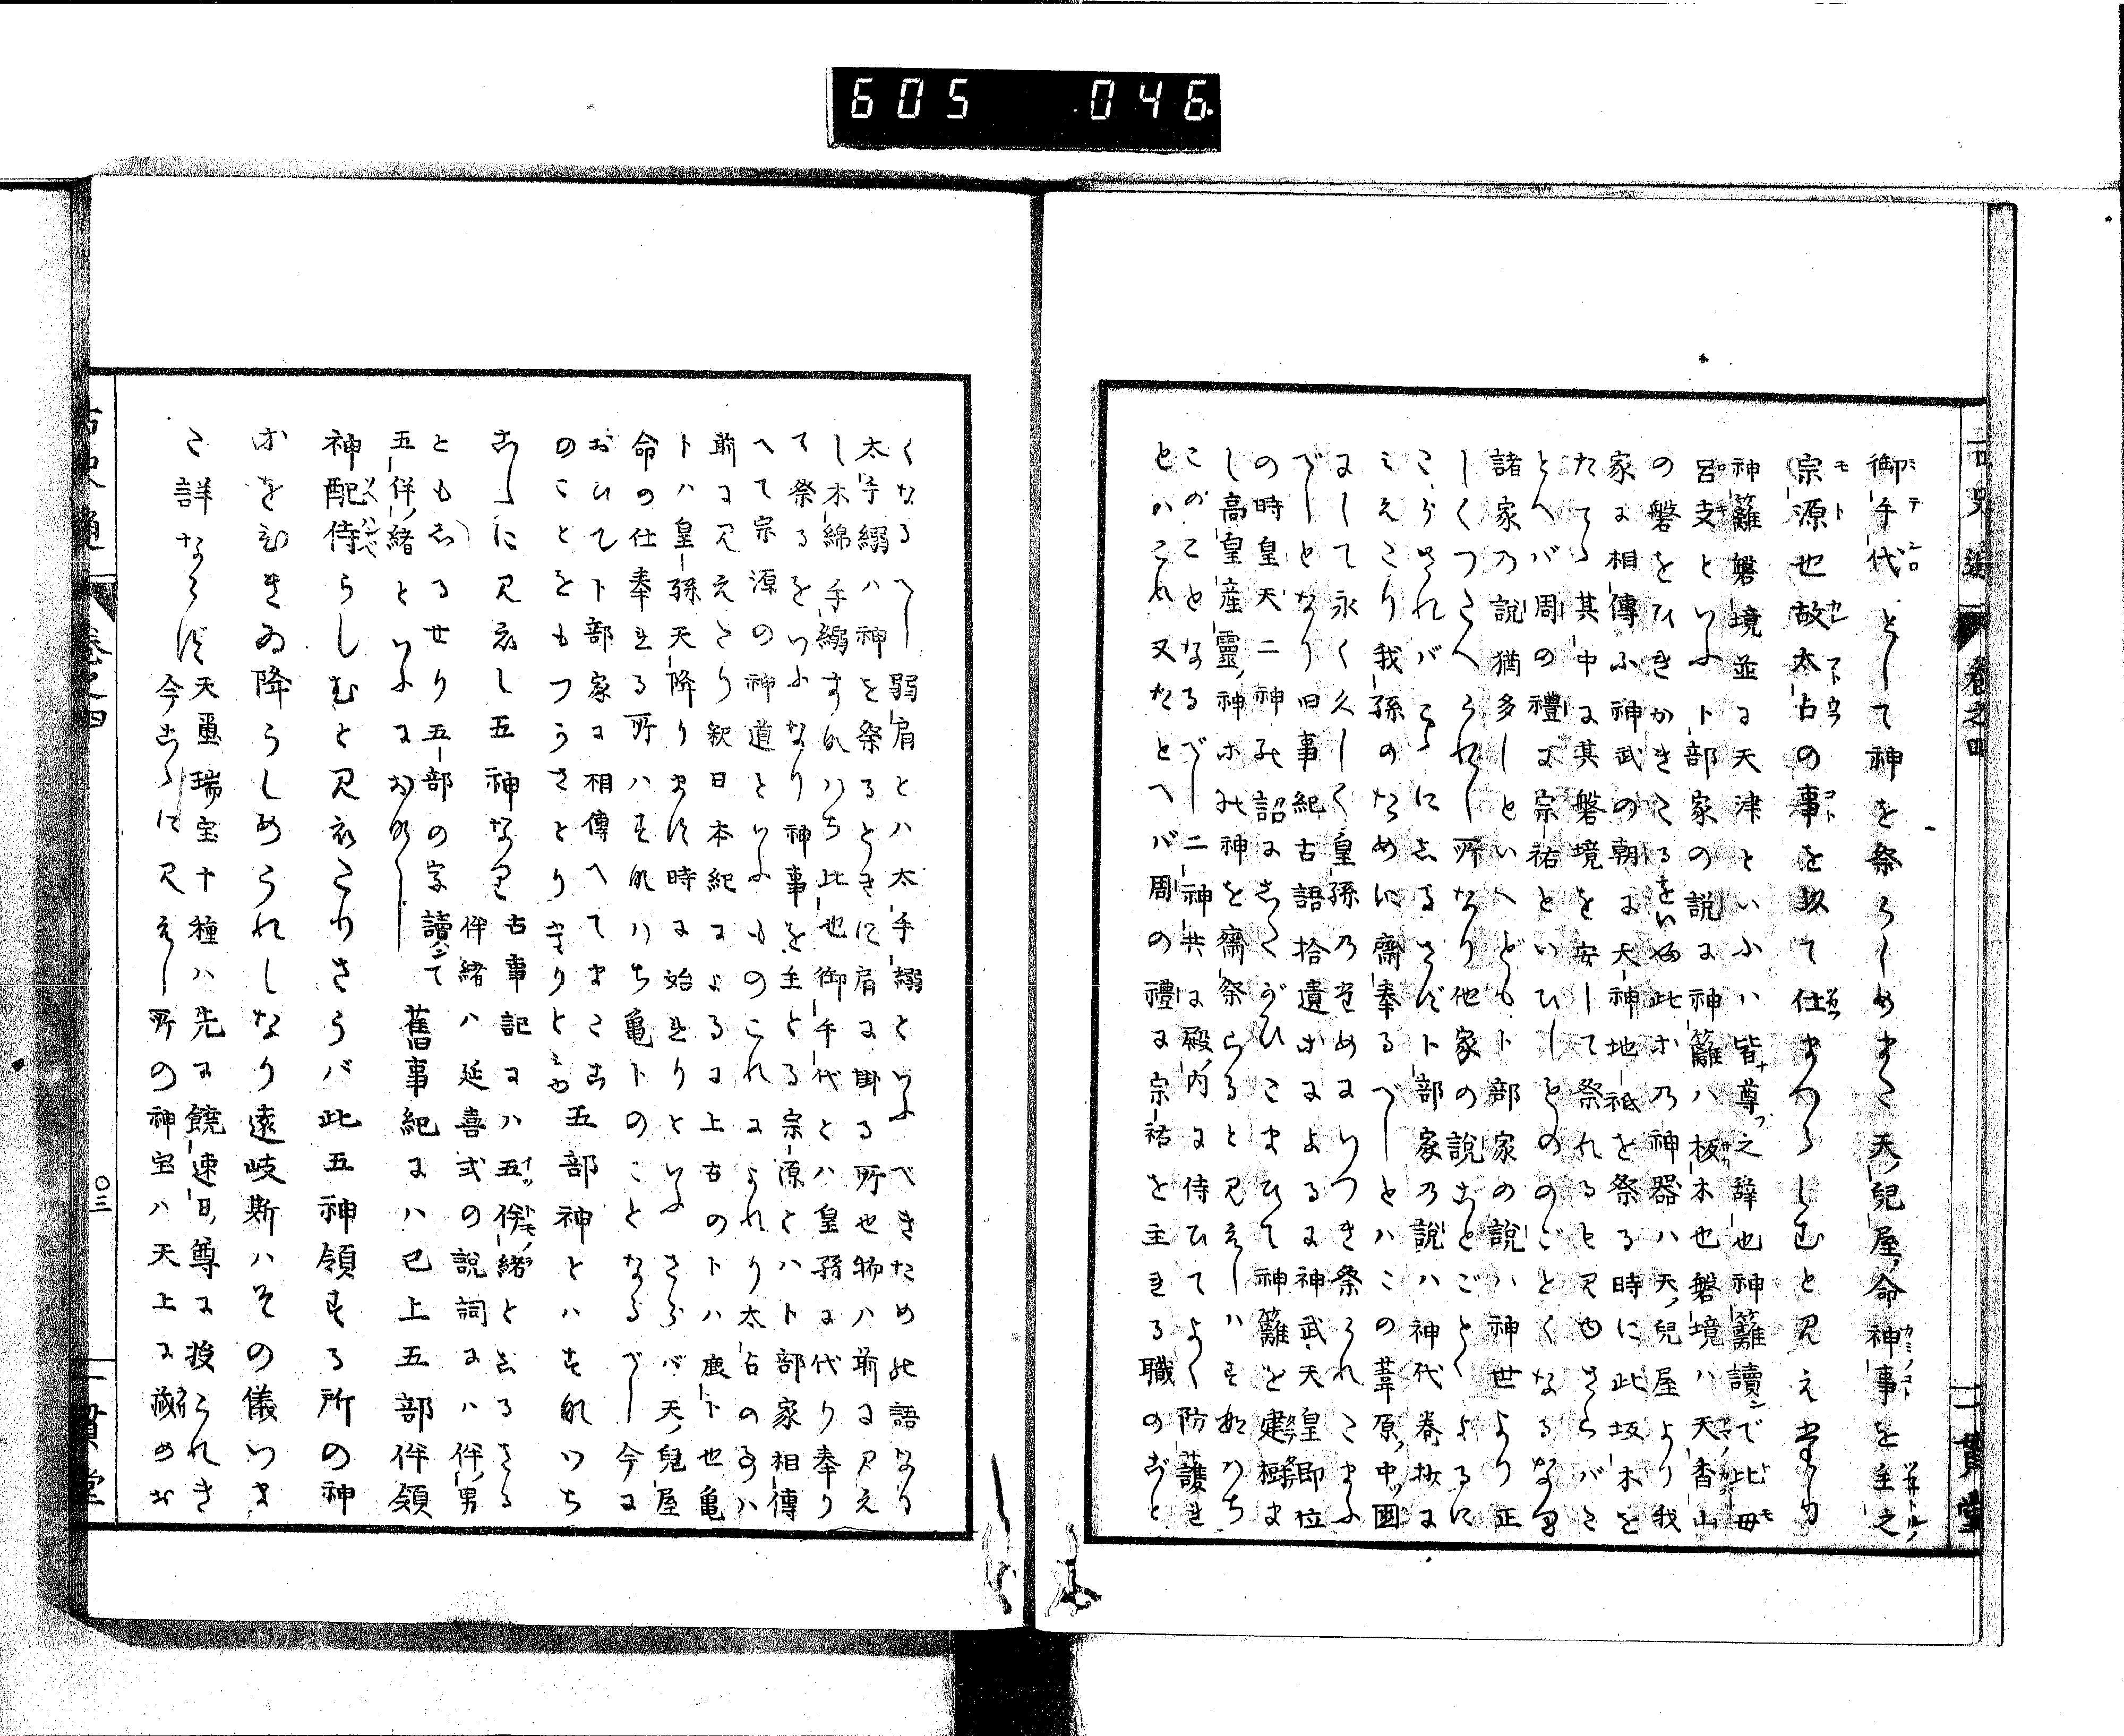 605 046
古史通 卷之四 一貫堂
御手代として神を祭らしめまた天ノ兒屋ノ命神事を主之
宗源也故太占の事を以て仕まつらしむと見えたり
神籬磐境並に天津といふハ皆尊之辞也神籬讀で比母
呂支といふト部家の説に神籬ハ板木也磐境ハ天香山
の磐をひきかきたるをいふ此ホ乃神器ハ天ノ兒屋より我
家に相傳ふ神武の朝に天神地祇を祭る時に此坂木を
たてゝ其中に其磐境を安して祭れると見ゆさらバた
とへバ周の禮に宗祐といひしものゝごとくなるなり
諸家乃説猶多しといへどもト部家の説ハ神世より正
しくつたへられし所なり他家の説ことごとくよるに
こゝろ得
みえたり我孫のために齋奉るべしとハこの葦原ノ中ツ國
にして永く久しく皇孫乃ためにいつき祭られたまふ
べしとなり旧事紀古語拾遺ホによるに神武天皇即位
の時皇天二神乃詔にしたがひたまひて神籬を建樹ま
し高皇産靈ノ神ホ乃神を齋祭らると見えしハすなハち
このことなるべし二神共に殿ノ内に侍ひてよく防護き
とハこれ又たとへバ周の禮に宗祐を主れる職のごと
くなるべし弱肩とハ太手繦といふべきための語なり
太手繦ハ神を祭るときに肩に掛る所也物ハ前に見え
し木綿手繦すなハち此也御手代とハ皇孫に代り奉り
て祭るをいふなり神事を主とる宗源とハト部家相傳
へて宗源の神道といふものこれによれり太占の事ハ
前に見えたり釈日本紀によるに上古のトハ鹿ト也亀
トハ皇孫天降ります時に始れりといふさらバ天ノ兒屋
命の仕奉れる所ハすなハち亀トのことなるべし今に
おひてト部家に相傳へてまたこ
のことをもつうさとり守りと云 五部神とハすなハち
こゝに見えし五神なり 古事記にハ五伴緒としるさる
伴緒ハ延喜式の説詞にハ伴ノ男
ともしるせり五部の字讀て
五伴ノ緒といふにおなし 舊事紀にハ已上五部伴領
神配侍らしむと見えたりさらバ此五神領する所の神
ホをひきゐ降らしめられしなり遠岐斯ハその儀いま
た詳ならず 天璽瑞宝十種ハ先に饒速日ノ尊に授られき
今こゝに見えし所の神宝ハ天上に藏めお
古史通 卷之四 〇三 一貫堂